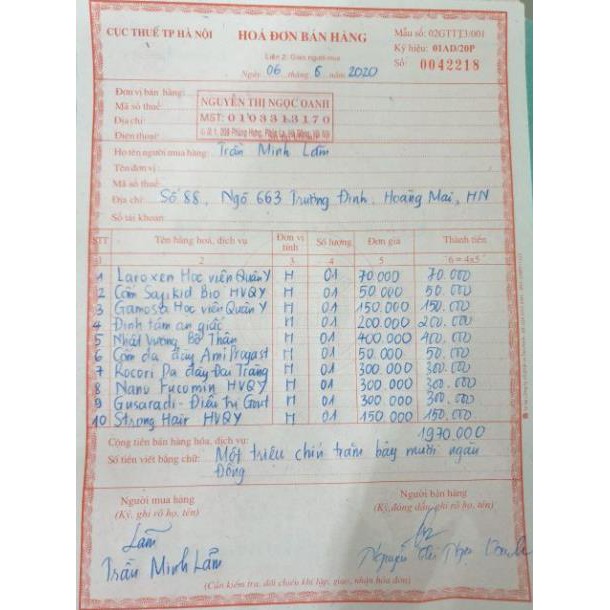 CỤC THUẾ TP HÀ NỘI
HOÁ ĐƠN BÁN HÀNG
Mẫu số: 02GTTT3/001
Liên 2: Giao người mua
Ký hiệu: 01AD/20P
Ngày 06 tháng 6 năm 2020
Số: 0042218
Đơn vị bán hàng:
NGUYỄN THỊ NGỌC OANH
Mã số thuế:
MST: 0103313170
Địa chỉ:
Điện thoại:
Họ tên người mua hàng: Trần Minh Lãm
Tên đơn vị:
Mã số thuế:
Địa chỉ: Số 88, Ngõ 663 Trương Định, Hoàng Mai, HN
Số tài khoản:
STT Tên hàng hoá, dịch vụ Đơn vị tính Số lượng Đơn giá Thành tiền
1 2 3 4 5 6 = 4x5
1 Laroxen Học viện Quân Y H 01 70.000 70.000
2 Cốm Sajikid Bio HVQY H 01 50.000 50.000
3 Gamosa Học viện Quân Y H 01 150.000 150.000
4 Định tâm an giấc H 01 200.000 200.000
5 Nhất Vương Bổ Thận H 01 400.000 400.000
6 Cốm dạ dày Ami H 01 50.000 50.000
7 Rocori Dạ dày Đại Tràng H 01 300.000 300.000
8 Nano Fucomin HVQY H 01 300.000 300.000
9 Gusaradi - Điều Trị Gout H 01 300.000 300.000
10 Strong Hair HVQY H 01 150.000 150.000
Cộng tiền bán hàng hóa, dịch vụ: 1970.000
Số tiền viết bằng chữ: Một triệu chín trăm bảy mươi ngàn
Đồng
Người mua hàng
Người bán hàng
(Ký, ghi rõ họ, tên)
(Ký, đóng dấu, ghi rõ họ, tên)
Lãm
Trần Minh Lãm
(Cần kiểm tra, đối chiếu khi lập, giao, nhận hóa đơn)